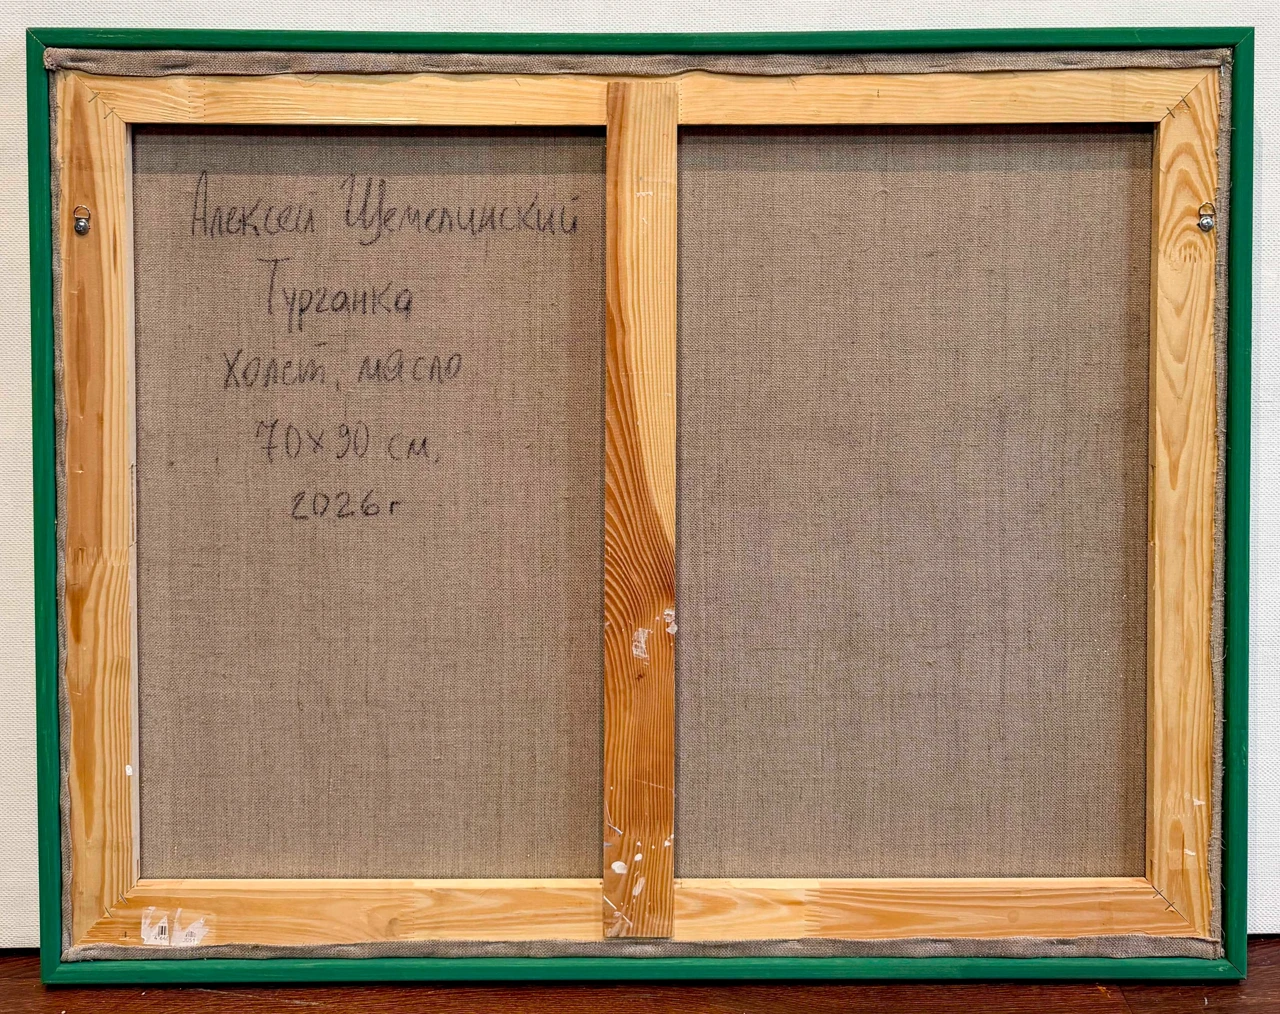 Алексей Щемелинский
Турганка
холст, масло
70х90 см.
2026г